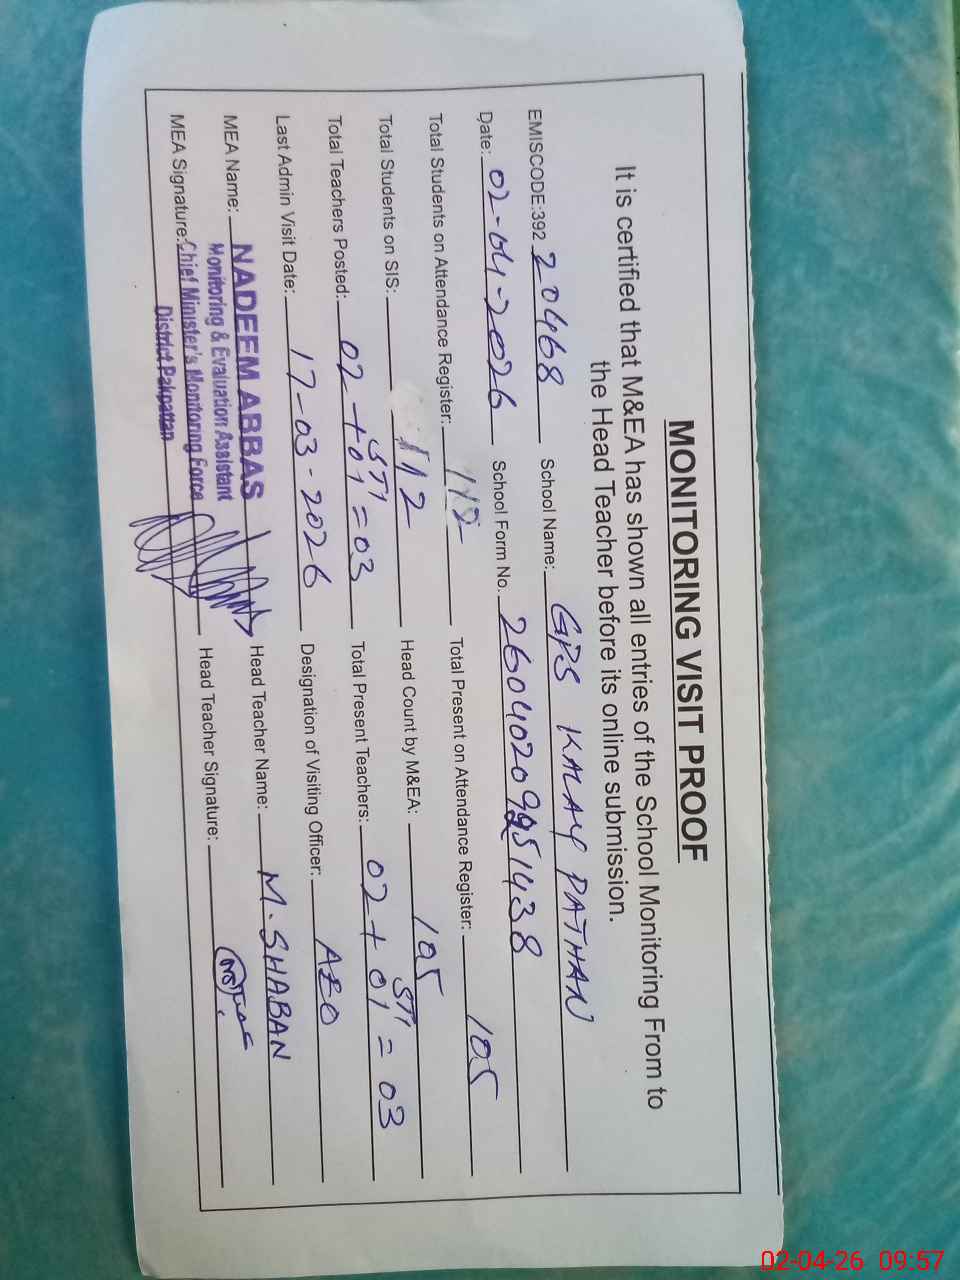 MONITORING VISIT PROOF
It is certified that M&EA has shown all entries of the School Monitoring From to
the Head Teacher before its online submission.
EMISCODE:392 20468 School Name: GPS KALAY PATHAN
Date: 02-04-2026 School Form No. 2604020951438
Total Students on Attendance Register: 112 Total Present on Attendance Register: 105
Total Students on SIS: 112 Head Count by M&EA: 105
Total Teachers Posted: 02+01 STI=03 Total Present Teachers: 02+01 STI=03
Last Admin Visit Date: 17-03-2026 Designation of Visiting Officer: AEO
MEA Name: NADEEM ABBAS Head Teacher Name: M.SHABAN
Monitoring & Evaluation Assistant
MEA Signature: Chief Minister's Monitoring Force Head Teacher Signature:
District Pakpattan
02-04-26 09:57